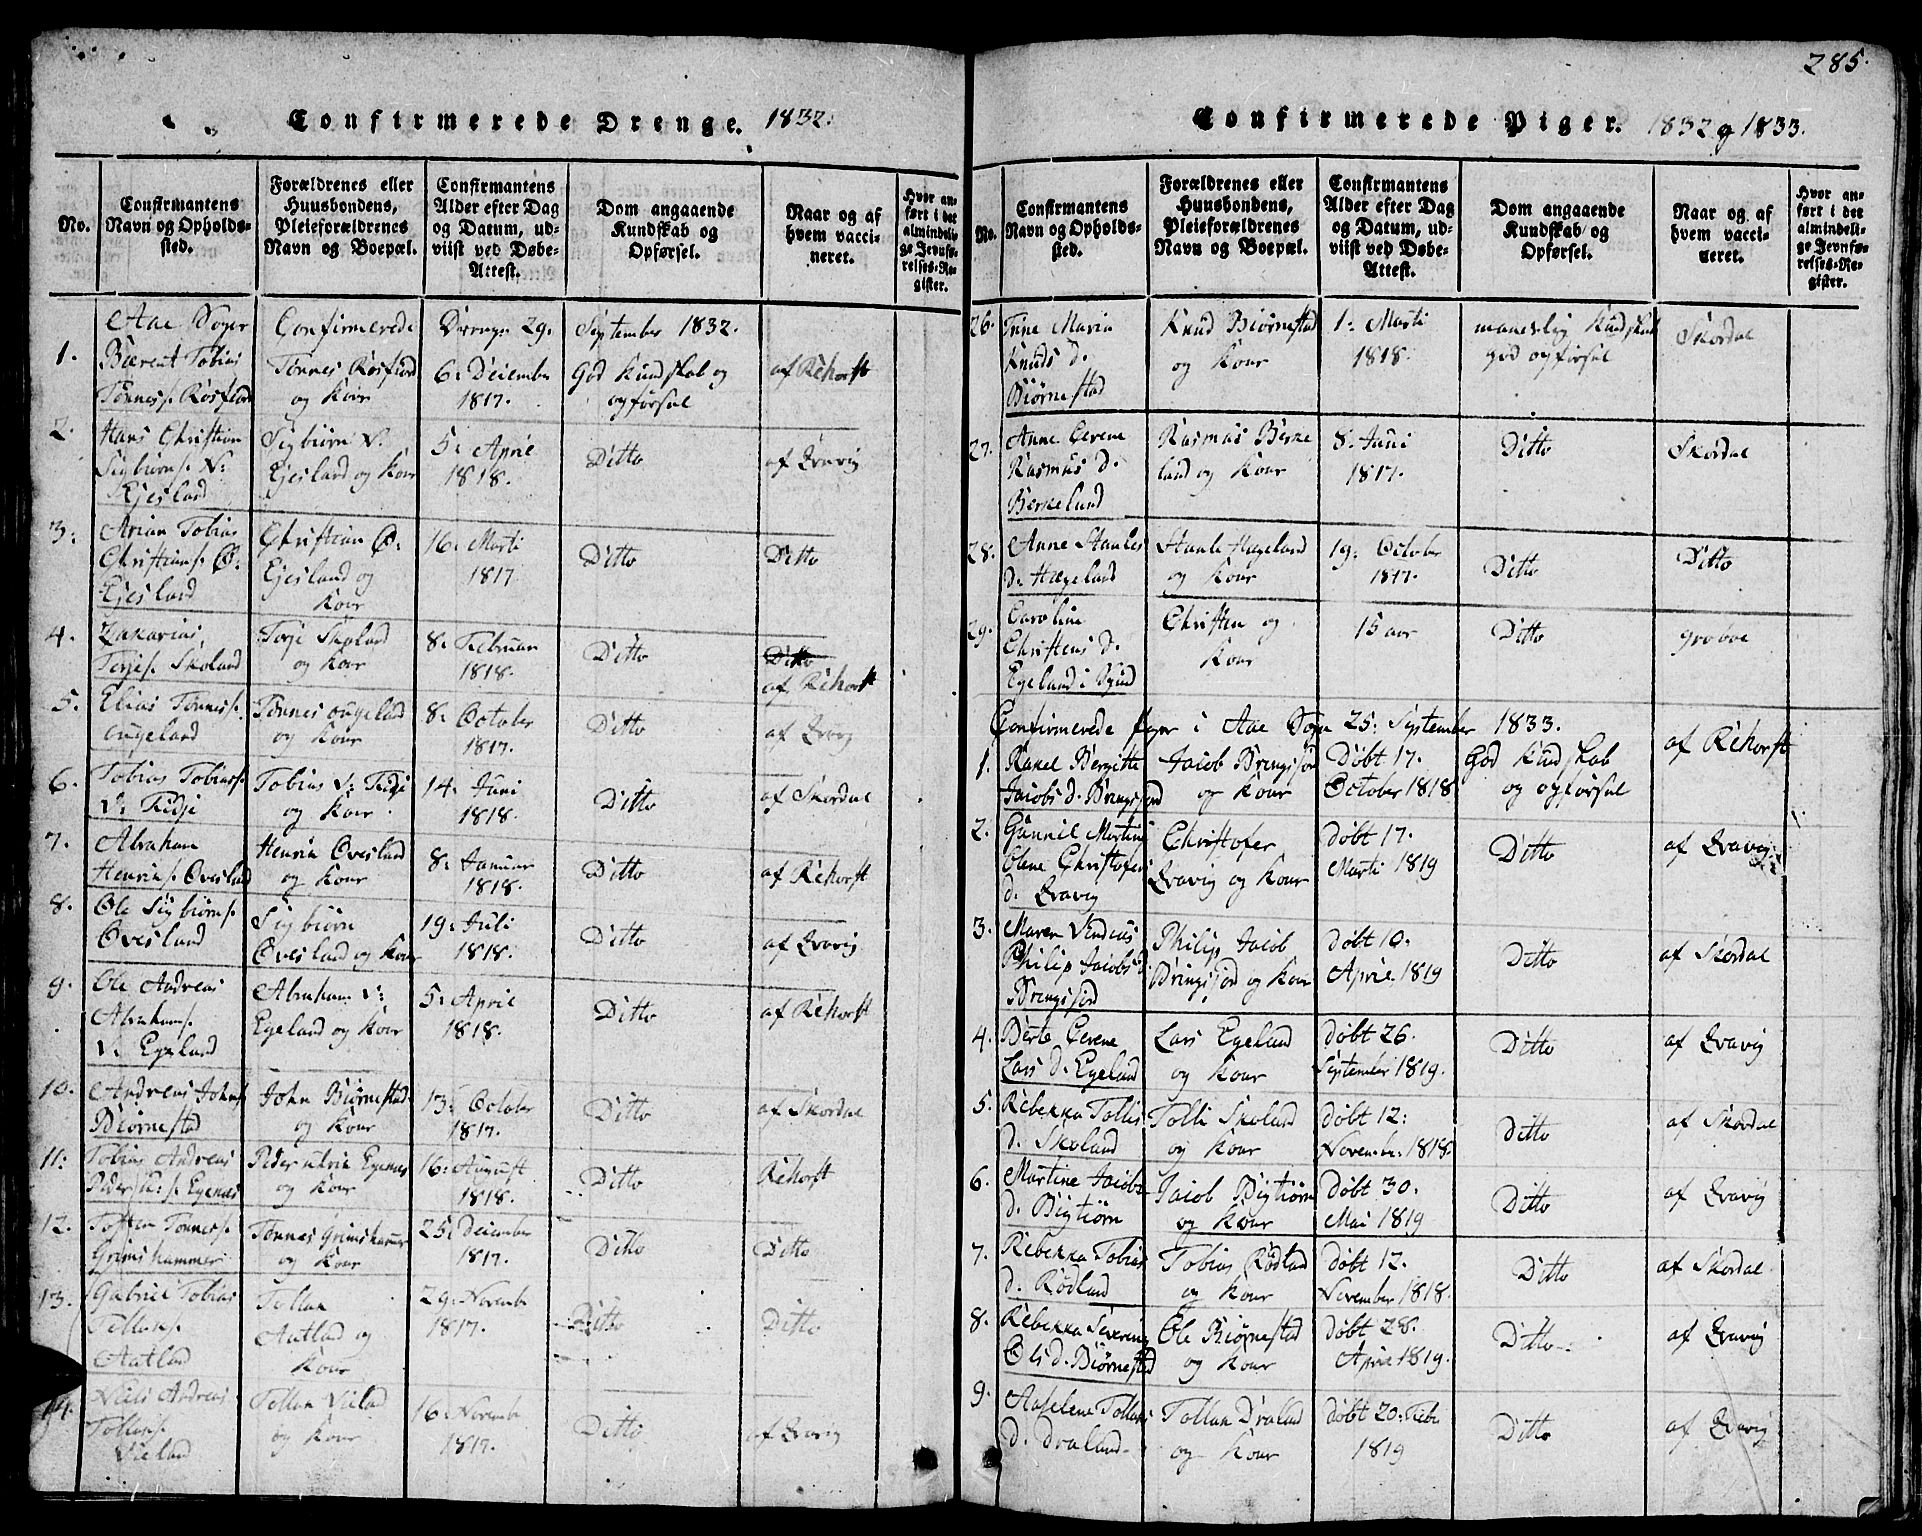 285.
Confirmerede Drenge. 1832.
No.
Confirmantens
Navn og Opholds-
sted.
Forældrenes eller
Huusbondens,
Pleieforældrenes
Navn og Boepæl.
Confirmantens
Alder efter Dag
og Datum, ud-
viist ved Døbe-
Attest.
Dom angaaende
Kundskab og
Opførsel.
Naar og af
hvem vacci-
neret.
Hvor an-
ført i det
almindeli-
ge Jevnfø-
relses-Re-
gister.
Aae Sogn Confirmerede Drenge 29. September 1832.
1. Bærent Tobias
Tønnes s. Rosfiord
Tønnes Rosfiord
og Kone
6: December
1817.
God Kundskab og
opførsel
af Rehorst
2. Hans Christian
Sigbiørns. N:
Ejesland
Sigbiørn N:
Ejesland og Kone
5: April
1818.
Ditto
af Qvavig
3. Arian Tobias
Christians. Ø:
Ejesland
Christian Ø:
Ejesland og
Kone
16: Marti
1817
Ditto
Ditto
4. Zakarias
Terjes. Skoland
Terje Skoland
og Kone
8: Februar
1818.
Ditto
Ditto
af Rehorst
5. Elias Tønnes s.
Ougeland
Tønnes Ougeland
og Kone
8: October
1817.
Ditto
af Qvavig
6. Tobias Tobias s.
N: Tidje
Tobias N: Tidje
og Kone
14. Juni
1818.
Ditto
af Skordal
7. Abraham
Henriks. Øvesland
Henrik Øvesland
og Kone
8: Januar
1818.
Ditto
af Rehorst
8. Ole Sigbiørns.
Øvesland
Sigbiørn
Øvesland og Kone
19: Juli
1818.
Ditto
af Qvavig
9. Ole Andreas
Abrahams.
N: Egeland
Abraham N:
Egeland og Kone
5: April
1818.
Ditto
af Rehorst
10. Andreas Johns.
Biørnestad
John Biørnestad
og Kone
13: October
1817.
Ditto
af Skordal
11: Tobias Andreas
Peder U: s. Egenæs
Peder Ulrik Egenæs
og Kone
16: August
1818.
Ditto
Rehorst
12. Tosten Tønnes s.
Grimshammer
Tønnes Grimshammer
og Kone
25: December
1817.
Ditto
Ditto
13. Gabriel Tobias
Tollaks.
Aatlad
Tollak
Aatlad og
Kone
29: Novemb
1817.
Ditto
Ditto
14. Niels Andreas
Tollaks.
Vieland
Tollak Vielad
og Kone
16: Novemb
1817.
Ditto
af Qvavig
Confirmerede Piger. 1832 og 1833.
No.
Confirmantens
Navn og Opholds-
sted.
Forældrenes eller
Huusbondens,
Pleieforældrenes
Navn og Boepæl.
Confirmantens
Alder efter Dag
og Datum, ud-
viist ved Døbe-
Attest.
Dom angaaende
Kundskab og
Opførsel.
Naar og af
hvem vacci-
neret.
Hvor an-
ført i det
almindeli-
ge Jevnfø-
relses-Re-
gister.
26. Trine Maria
Knuds d.
Biørnestad
Knud Biørnestad
og Kone
1: Marti
1818.
maneslig Kundskab
god opførsel
Skordal
27. Anne Gerene
Rasmus D.
Berkeland
Rasmus Berke
land og Kone
8. Juni
1817.
Ditto
Skordal
28. Anne Staales
D. Hægeland
Staale Hægeland
og Kone
19: October
1817.
Ditto
Ditto
29. Caroline
Christens D.
Egeland i Spind
Christen og
Kone
15 aar
Ditto
Groboe
Confirmerede Piger i Aae Sogn 25: September 1833.
1. Rakel Bergitte
Jacobs d. Bringsjord
Jacob Bringsjord
og Kone
Døbt 17.
October 1818
God Kundskab
og opførsel
af Rehorst
2. Gunnil Martine
Olene Christofers
d. Qvavig
Christofer
Qvavig og Kone
døbt 17.
Marti 1819
Ditto
af Qvavig
3. Maren Andrias
Philip Jacobs D.
Bringsjord
Philip Jacob
Bringsjord og Kone
døbt 10.
April 1819
Ditto
af Skordal
4. Berte Gerene
Lars D. Egeland
Lars Egeland
og Kone
døbt 26.
September 1819.
Ditto
af Qvavig
5. Rebekka Tollis
d. Skoland
Tolli Skoland
og Kone
døbt 12:
November 1818.
Ditto
af Skordal
6. Martine Jacobs
D. Bigtiørn
Jacob Bigtiørn
og Kone
Døbt 30.
Mai 1819
Ditto
af Qvavig
7. Rebekka Tobias
D. Rødland
Tobias Rødland
og Kone
døbt 12.
November 1818.
Ditto
af Skordal
8. Rebekka Severine
Ols D. Biørnestad
Ole Biørnestad
og Kone
døbt 28.
April 1819.
Ditto
af Qvavig
9. Aaselene Tollaks
D. Draland
Tollak Draland
og Kone
døbt 20: Feb:
1819
Ditto
af Qvavig